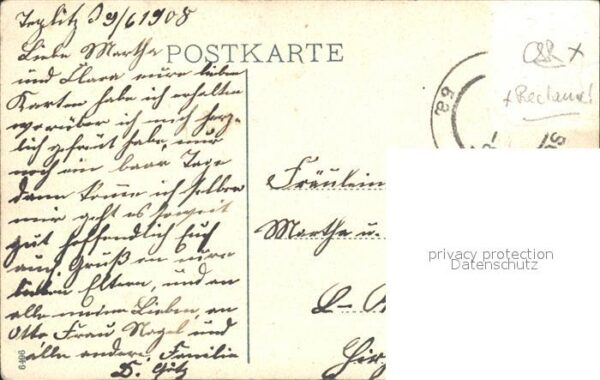 Teplitz 29/6 1908
POSTKARTE
Liebe Martha
und Clara eure lieben
Karten habe ich erhalten
worüber ich mich herz-
lich gefräut habe, nur
noch ein baar Tage
dann komme ich selber
mir geht es soweit
gut hoffendlich Euch
auch Gruß an eure
lieben Eltern, und an
alle meine Lieben, an
Otto Frau Nagel und
alle andere. Familie
D. Götz
Fräulein
Martha u.
Reclame!
privacy protection
Datenschutz
6a
6496